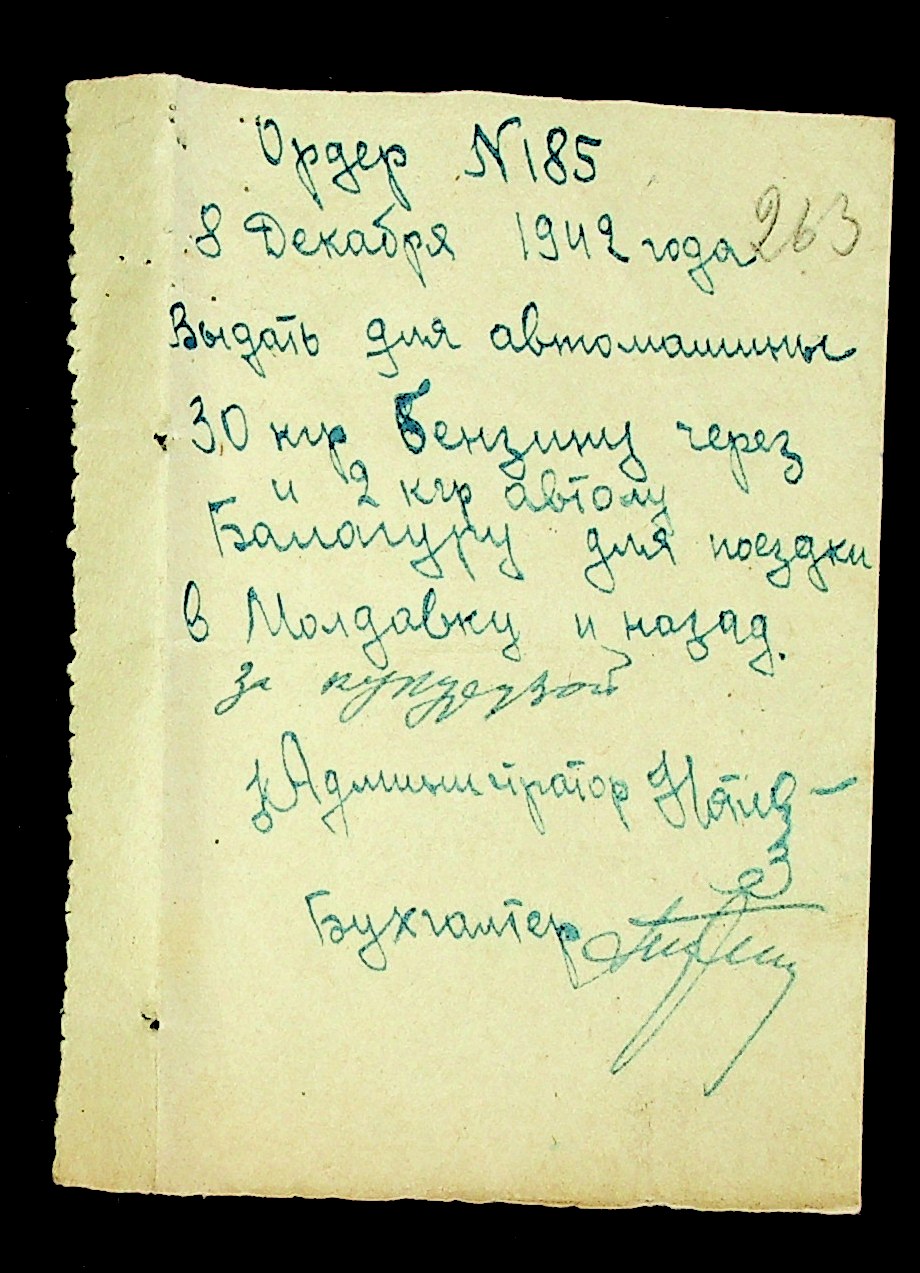 Ордер N185
263
8 Декабря 1942 года
Выдать для автомашины
30 кгр бензину через
и 2 кгр автолу
Балагуру для поездки
в Молдавку и назад.
за кукурузой
Администратор
Бухгалтер